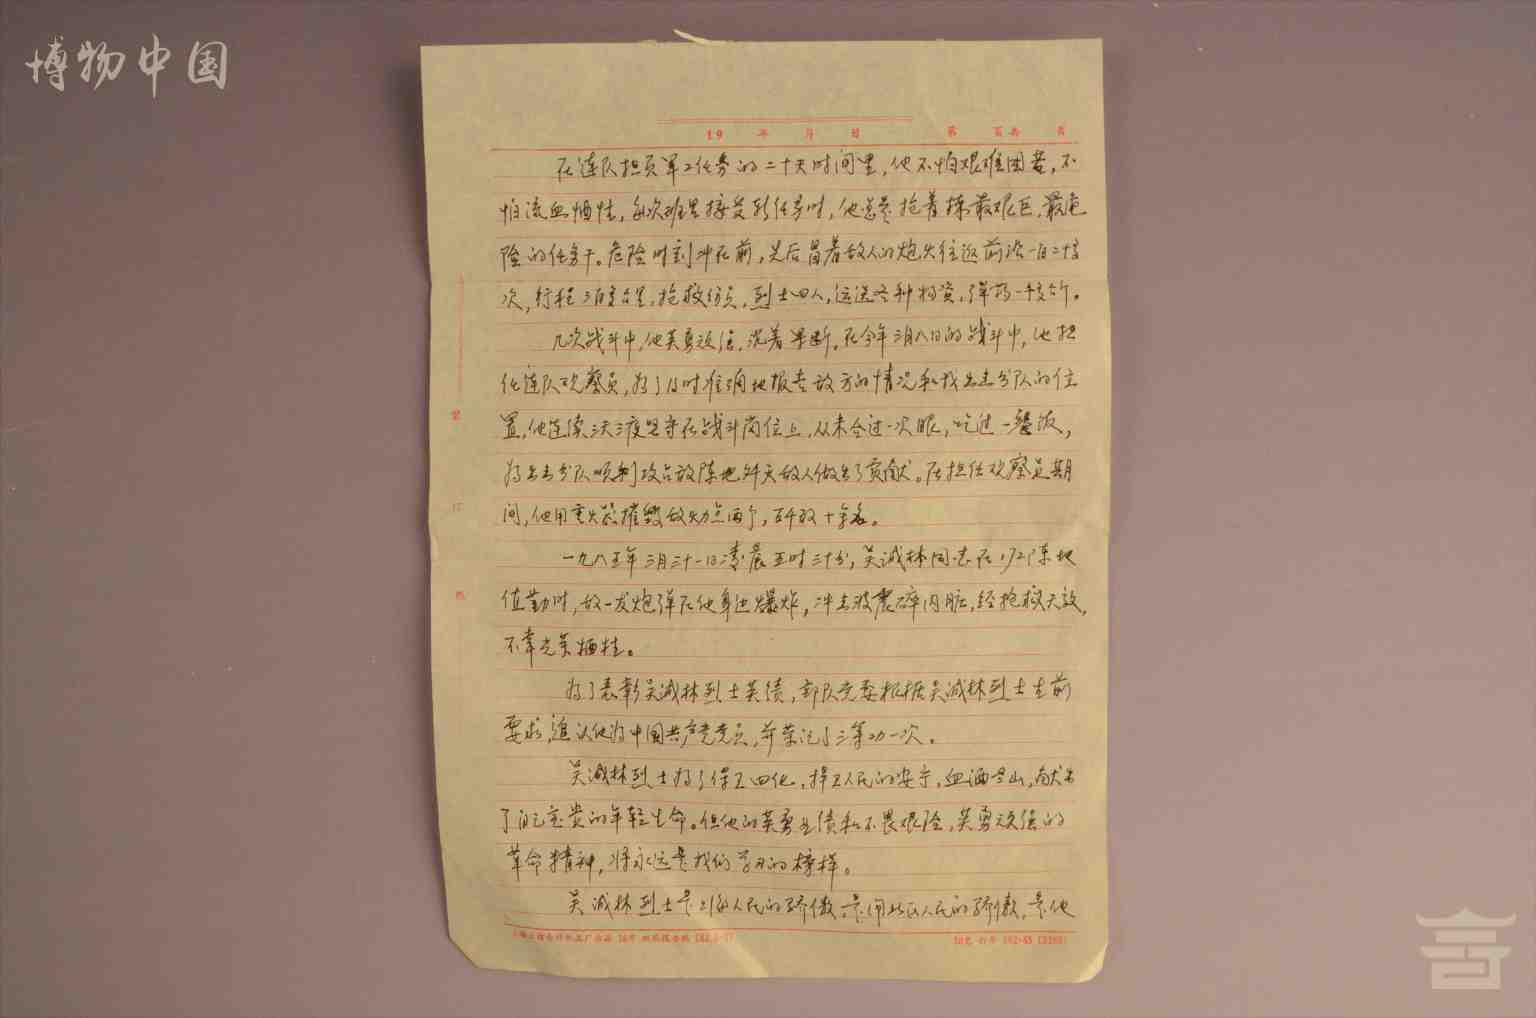 博物中国
19 年 月 日 第 页共 页
在连队担负军工任务的二十天时间里，他不怕艰难困苦，不
怕流血牺牲，每次班里接受新任务时，他总是抢着拣最艰巨，最危
险的任务干。危险时刻冲在前，先后冒着敌人的炮火往返前沿一百二十多
次，行程三百多公里，抢救伤员，烈士四人，运送各种物资，弹药一千多斤。
几次战斗中，他英勇顽强，沉着果断，在今年三月八日的战斗中，他担
任连队观察员，为了及时准确地报告敌方的情况和我出击分队的位
置，他连续三天三夜坚守在战斗岗位上，从未合过一次眼，吃过一餐饭，
为出击分队顺利攻占敌阵地歼灭敌人做出了贡献。在担任观察员期
间，他用重火器摧毁敌火力点两个，歼敌十余名。
一九八五年三月二十一日清晨五时三十分，吴诚林同志在172阵地
值勤时，敌一发炮弹在他身边爆炸，冲击波震碎内脏，经抢救无效，
不幸光荣牺牲。
为了表彰吴诚林烈士英绩，部队党委根据吴诚林烈士生前
要求，追认他为中国共产党党员，并荣记了三等功一次。
吴诚林烈士为了保卫四化，捍卫人民的安宁，血洒老山，献出
了自己宝贵的年轻生命。但他的英勇业绩和不畏艰险，英勇顽强的
革命精神，将永远是我们学习的榜样。
吴诚林烈士是上海人民的骄傲，是闸北区人民的骄傲，是他
装
订
线